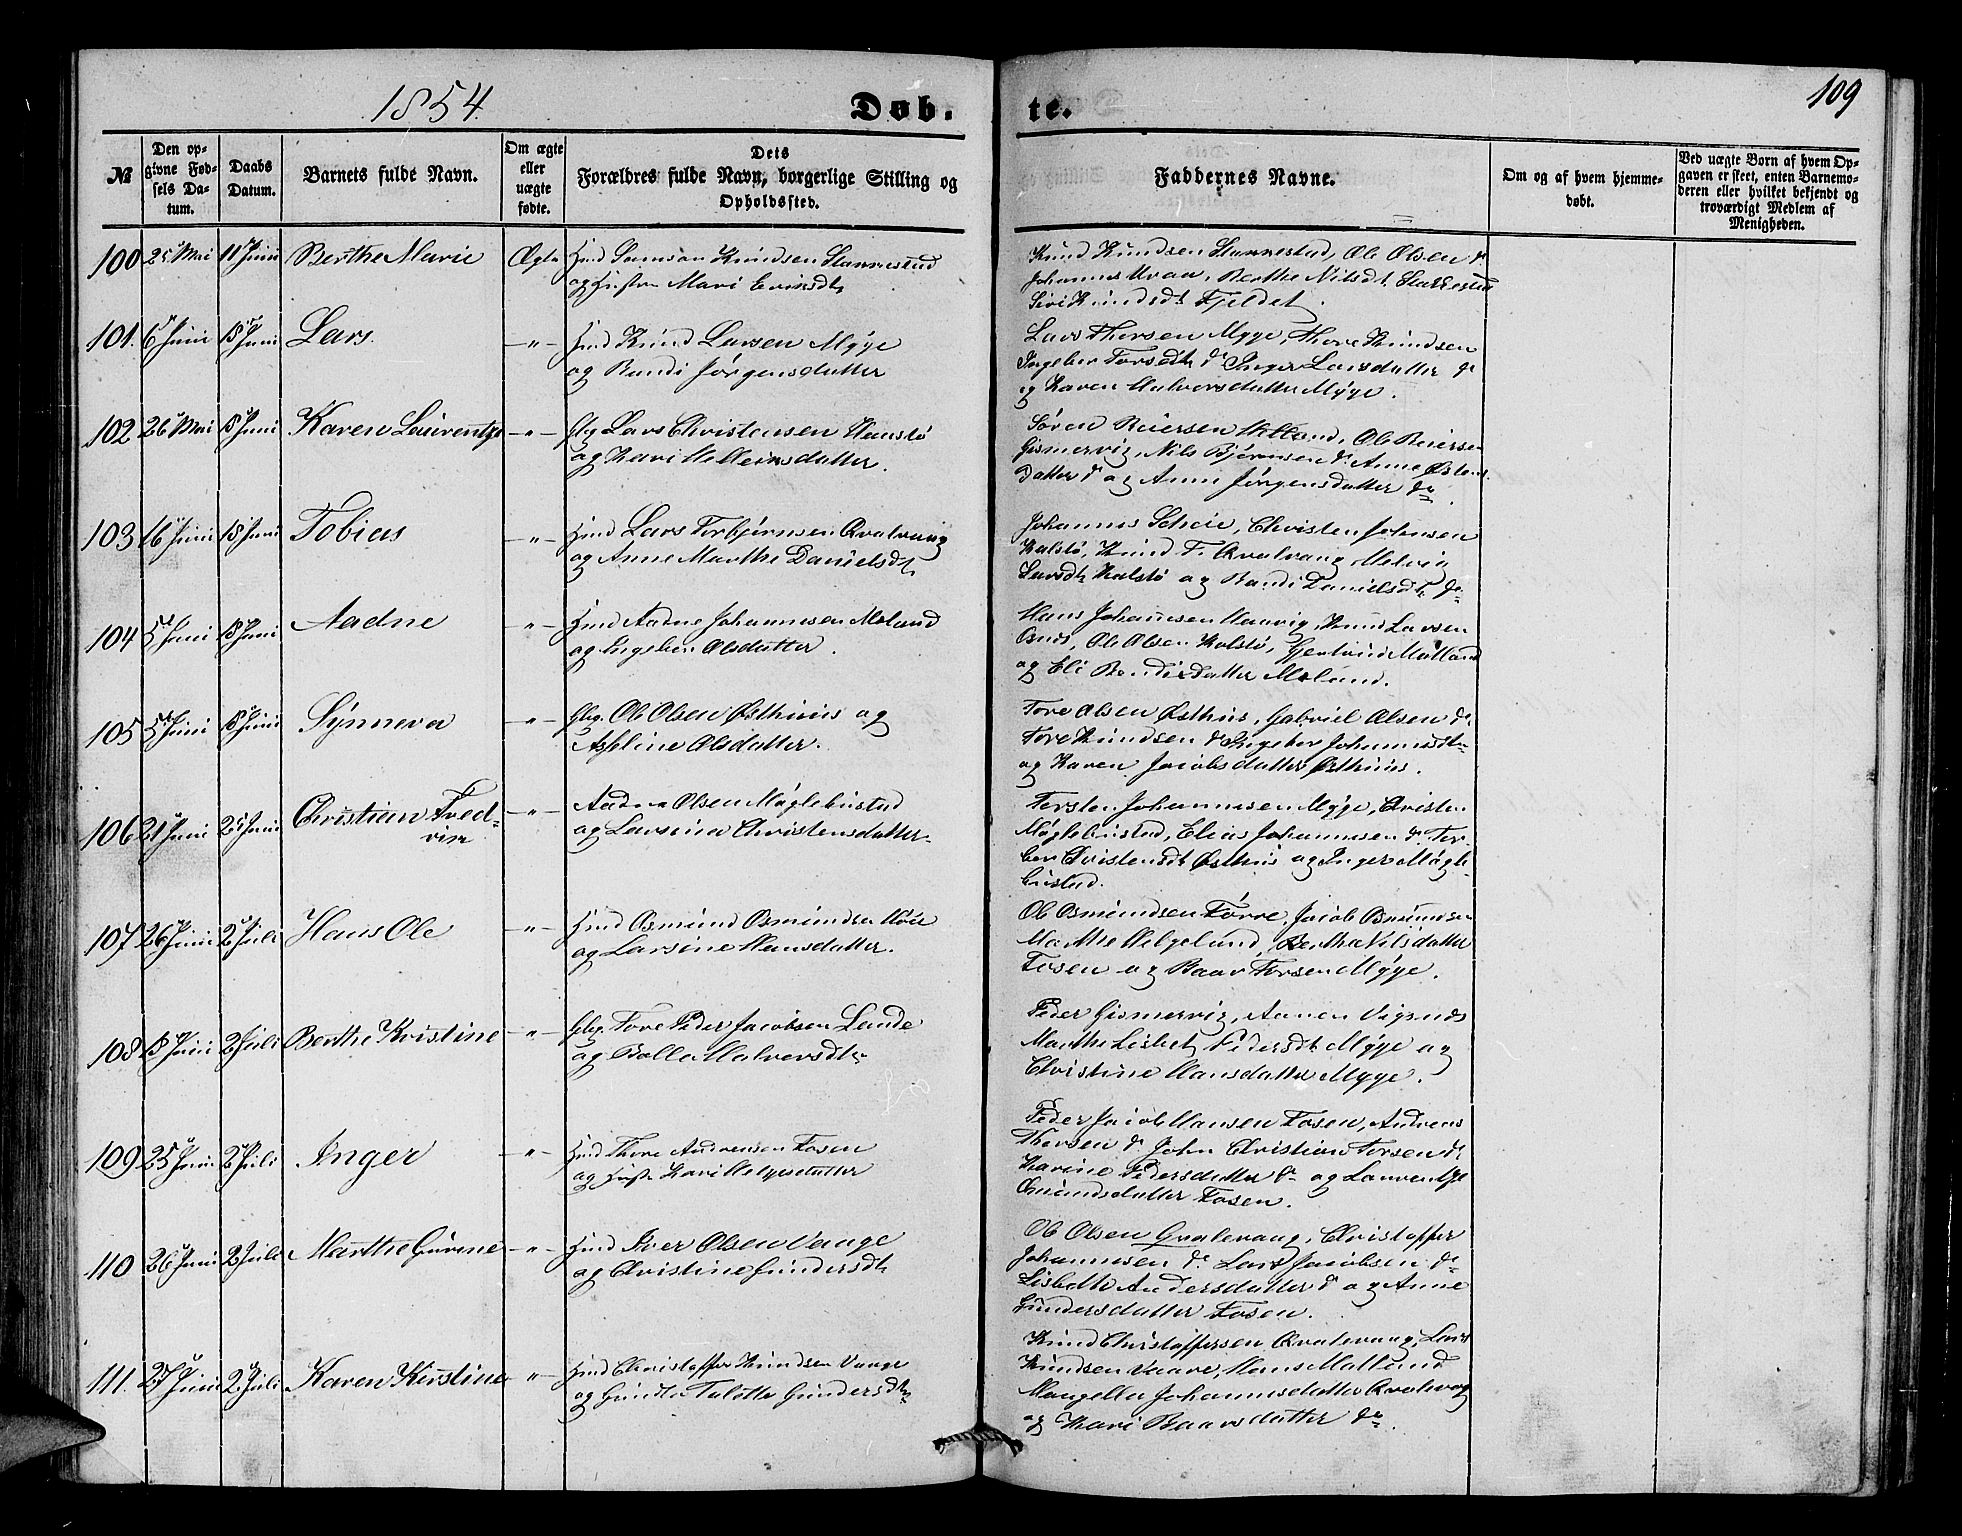 1854.
Døb.
te.
109
№
Den opgivne Fødsels Datum.
Daabs Datum.
Barnets fulde Navn.
Om ægte eller uægte fødte.
Dets Forældres fulde Navn, borgerlige Stilling og Opholdssted.
Faddernes Navne.
Om og af hvem hjemmedøbt.
Ved uægte Børn af hvem Opgaven er skeet, enten Barnemoderen eller hvilket bekjendt og troværdigt Medlem af Menigheden.
100 25 Mai 11 Juni Berthe Marie Ægte
Samson Knudsen Stannestad
og Hustru Mari Eriksdt
Knud Knudsen Stannestad, Ole Olsen do
Johannes Vraa, Berthe Nilsdt
Siri Knudsdt Fjeldet.
101. 6 Juni 18 Juni Lars. -"-
Hmd Knud Larsen Myge
og Randi Jørgensdatter
Lars Thorsen Myge, Thore Knudsen
Ingebor Torsdt do Inger Larsdatter do
og Karen Halvorsdatter Myge.
102 26 Mai 18 Juni Karen Laurentze -"-
Lars Christensen
og Kari Helleinsdatter.
Søren Reiersen Ole Reiersen
Gismervig, Nils Bjørnsen do Anne Østens
Datter do og Anne Jørgensdatter do
103 16 Juni 18 Juni Tobias -"-
Hmd Lars Torbjørnsen Qvalvaag
og Anne Marthe Danielsdt
Johannes Scheie, Christen Johnsen
Kalstø, Knud T. Qvalvaag
Larsdt Kalstø og Randi Danielsdt do
104 5 Juni 18 Juni Aadne -"-
Hmd Aadne Johannesen
og Ingebor Olsdatter.
Hans Johannesen Haavig, Knud Larsen
Ole Olsen Kalstø,
og Eli
105 5 Juni 18 Juni Synneva -"-
Ole Olsen Østhuus og
Asseline Olsdatter.
Tore Olsen Østhus, Gabriel Olsen do
Tore Knudsen do Ingebor Johannesdt
og Karen Jacobsdatter Østhuus.
106 21 Juni 25 Juni Christian Fredvin -"-
Aadne Olsen Møglebustad
og Larsina Christensdatter.
Torsten Johannesen Myge, Christen
Møglebustad, Elias Johannesen do Torber Christensdt Østhus og Inger Møglebustad.
107 26 Juni 2 Juli Hans Ole -"-
Hmd Osmund Osmundsen
og Larsine Hansdatter.
Ole Osmundsen Førre, Jacob Osmundsen
Marthe Helgeland, Berthe Nilsdatter
Fosen og Baar Torsen Myge.
108 18 Juni 2 Juli Berthe Kristine -"-
Tore Peder Jacobsen Lande
og Halvorsdt
Peder Gismervig, Aanen Vigsnæs
Marthe Lisbet Pedersdt Myge og
Christine Hansdatter Myge.
109 25 Juni 2 Juli Inger -"-
Hmd Thore Andreasen Fosen
og Kari Helgesdatter
Peder Jacob Hansen Fosen, Andreas
Thorsen do John Christian Torsen do
Karine Pedersdatter do og Laurentze
Osmundsdatter Fosen.
110 26 Juni 2 Juli Marthe Gurine -"-
Hmd Iver Olsen Vaage
og Christine Gundersdt
Ole Olsen Qvalevaag, Christoffer
Johannesen do Lars Jacobsen do
Lisbethe Andersdatter do og Anne
Gundersdatter Fosen.
111. 25 Juni 2 Juli Karen Kirstine -"-
Hmd Christoffer Knudsen Vaage
og Gundersdt
Knud Christoffersen Qvalevaag, Lars
Knudsen Vaare, Hans Matland
Johannesdatter Qvalevaag
og Kari Baarsdatter do.